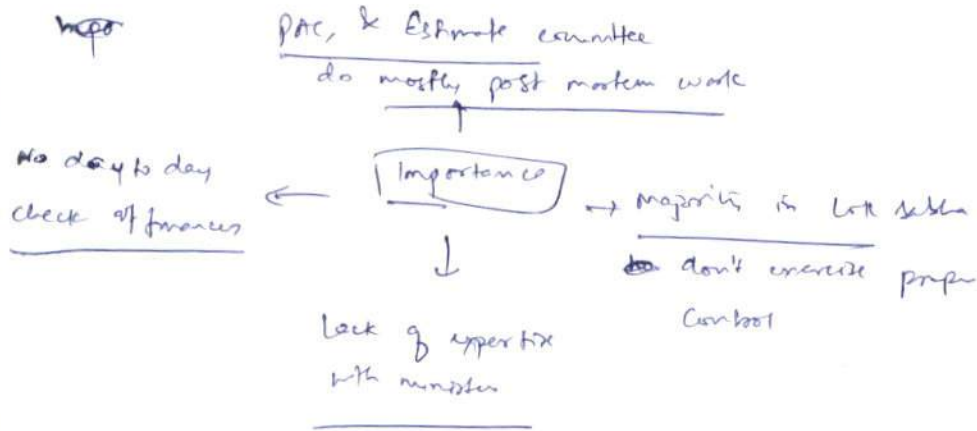 PAC, & Estimate committee
do mostly post mortem work
No day to day
check of finances
Importance
Majority in Lok Sabha
don't exercise proper
Control
Lack of expertise
with minister